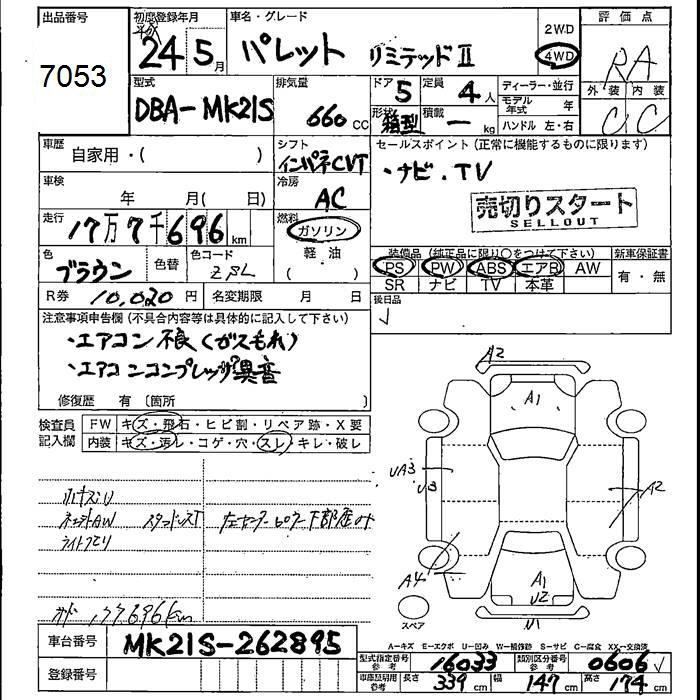 出品番号
7053
初度登録年月
平成
24 5月
車名・グレード
パレット リミテッドⅡ
2WD
4WD
評価点
RA
外装 内装
C C
型式
DBA-MK21S
排気量
660 CC
ドア 5
定員 4人
形状 箱型
積載 ー kg
ディーラー・並行
モデル年式 年
ハンドル 左・右
車歴
自家用・( )
シフト
インパネCVT
セールスポイント(正常に機能するものに限ります)
・ナビ.TV
売切りスタート
SELLOUT
車検
年 月( 日)
冷房
AC
走行
17万7千696km
燃料
ガソリン
軽油
( )
色
ブラウン
色替
色コード
ZPL
装備品(純正品に限り○をつけて下さい)
PS PW ABS エアB AW
SR ナビ TV 本革
新車保証書
有・無
R券 10,020円
名変期限 月 日
後日品
注意事項申告欄(不具合内容等は具体的に記入して下さい)
・エアコン不良(ガスもれ)
・エアコンコンプレッサ異音
修復歴 有〔箇所 〕
検査員
記入欄
FW キズ・飛石・ヒビ割・リペア跡・X要
内装 キズ・汚レ・コゲ・穴・スレ・キレ・破レ
A2
A1
UA3
U3
A2
A4
A1
U2
U1
スペア
A-キズ E-エクボ U-凹み W-補修跡 S-サビ C-腐食 XX-交換済
車台番号
MK21S-262895
登録番号
型式指定番号
参考
16033
類別区分番号
参考
0606
車庫証明用
参考
長さ 339cm
幅 147cm
高さ 174cm